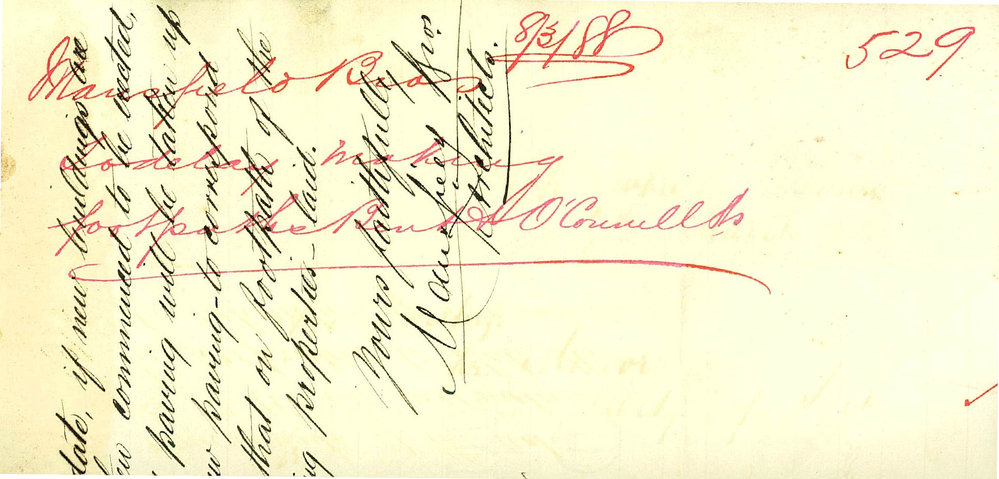 8/3/88
529
Mansfield Bros
to delay making
footpaths Bent & O'Connell Sts
date, if new buildings are
commenced to be erected,
paving will be taken up
paving - to correspond
that on footpath of the
properties - laid.
Yours faithfully
Mansfield Bros.
Architects.